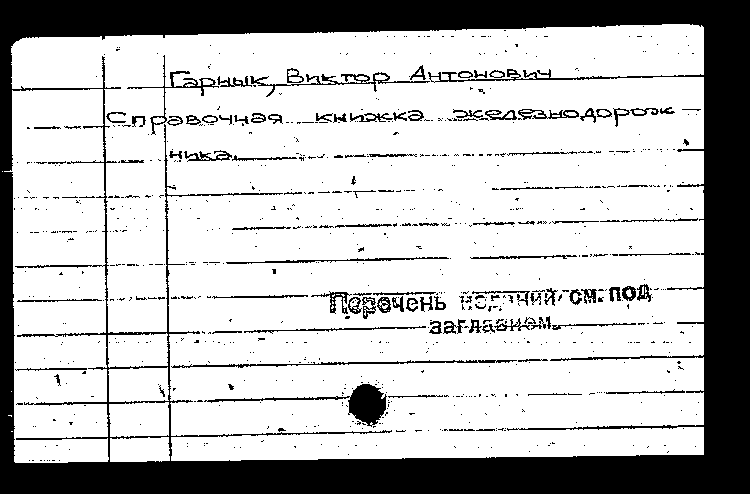 Гарнык, Виктор Антонович
Справочная книжка железнодорож-
ника.
Перечень изданий см. под
заглавием.